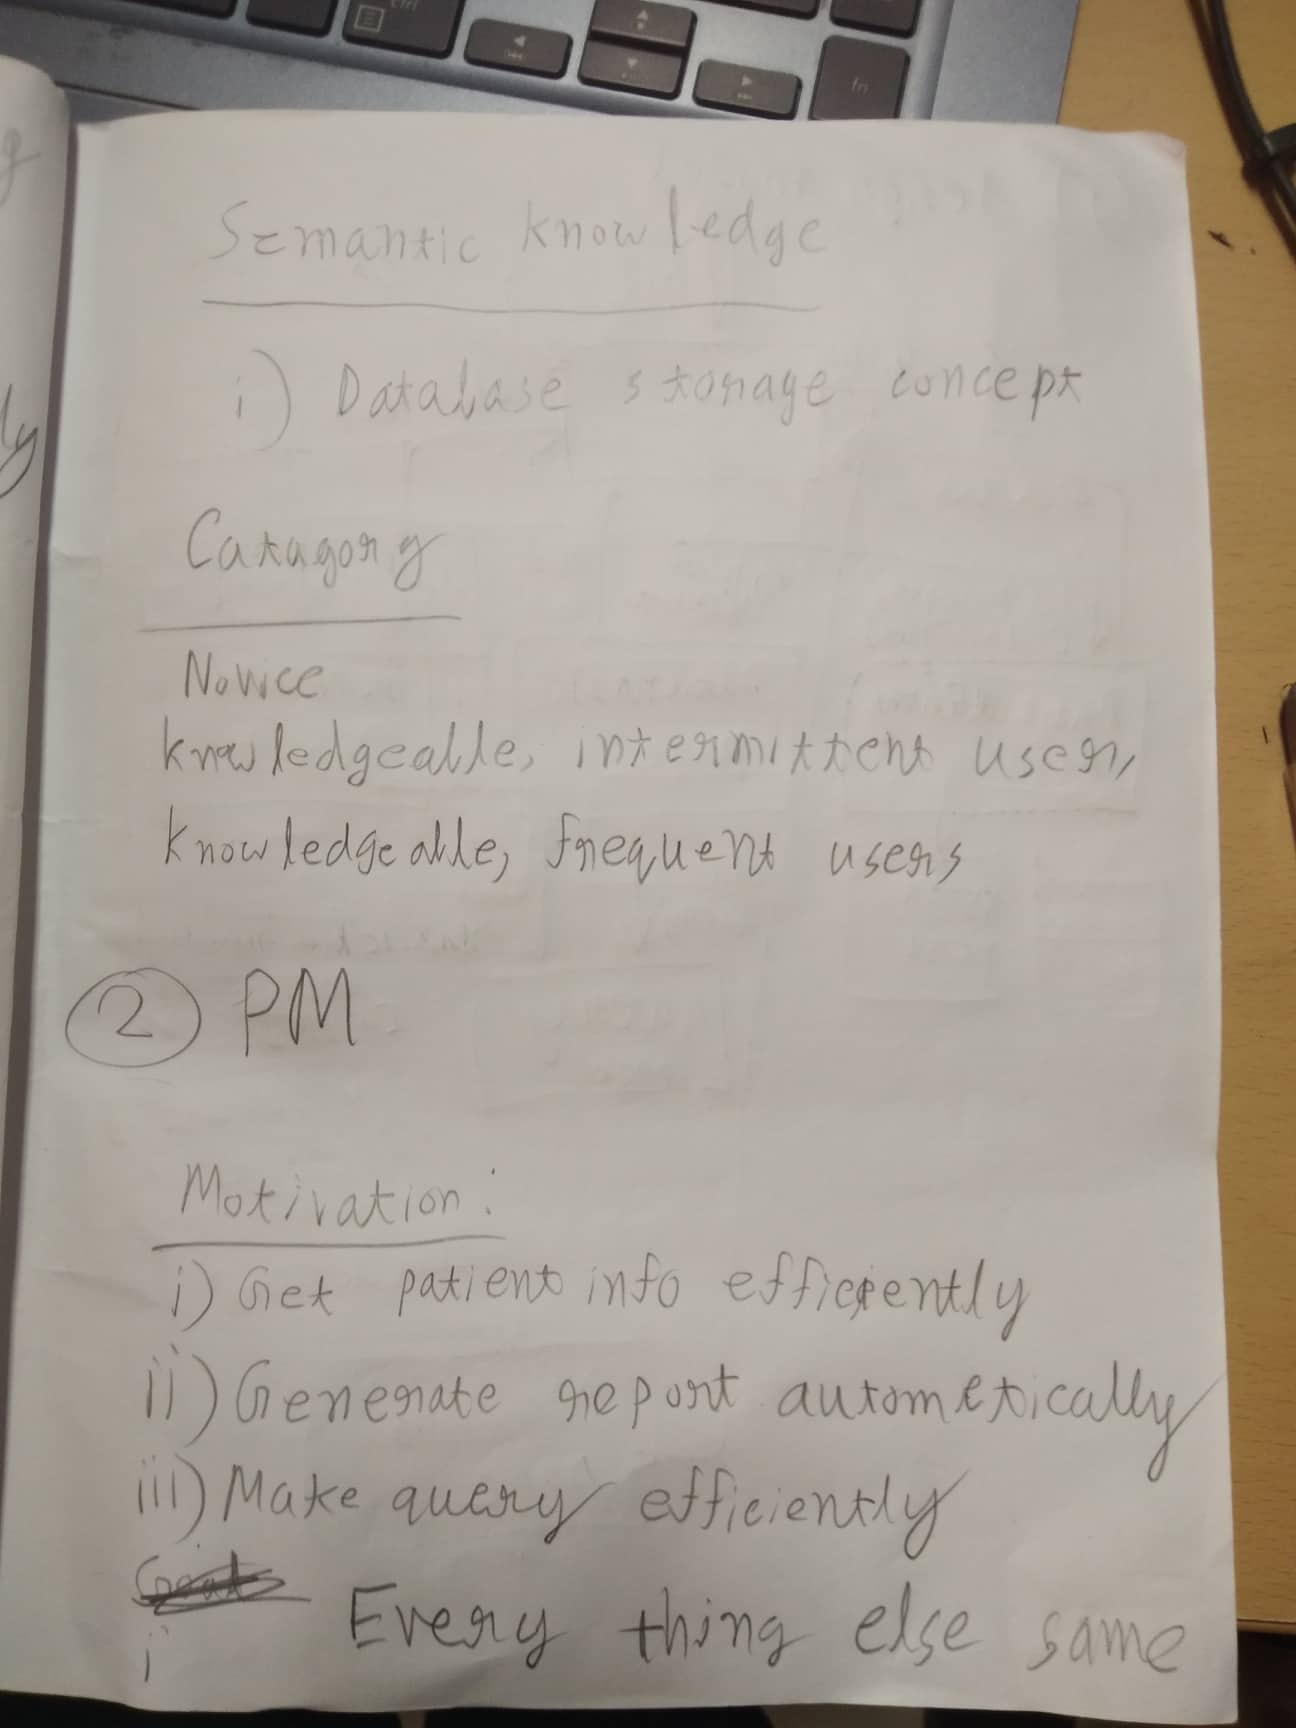 Semantic knowledge
i) Database storage concept
Catagory
Novice
knowledgeable, intermittent user,
knowledgeable, frequent users
2 PM
Motivation:
i) Get patient info efficiently
ii) Generate report autometically
iii) Make query efficiently
i Every thing else same
ly
fn